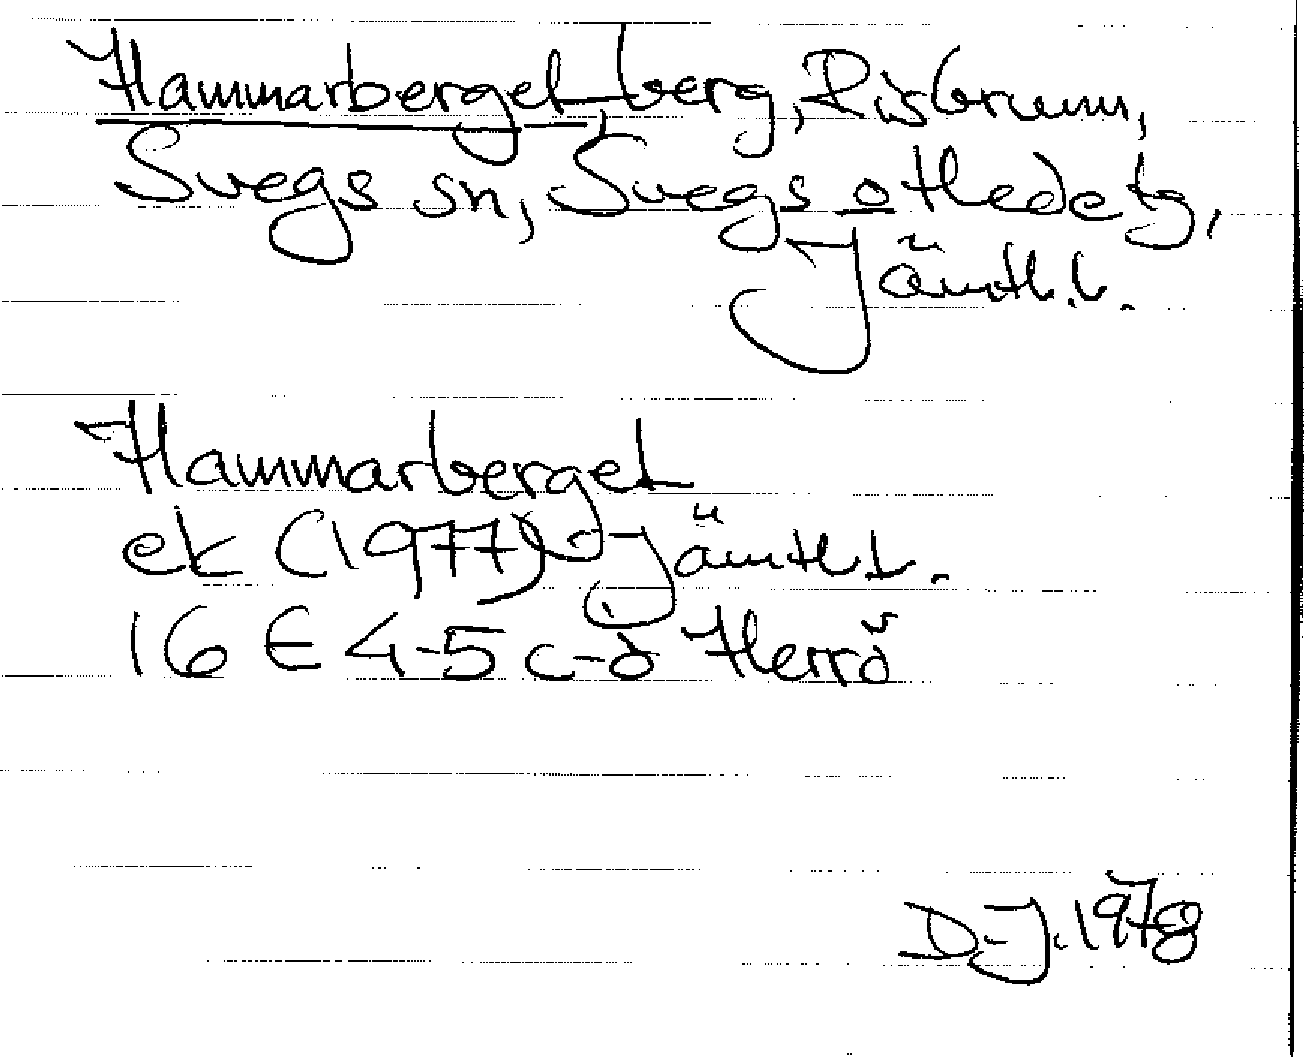 Hammarberget, berg, Risbrunn,
Svegs sn, Svegs o Hede tg,
Jämtl.l.
Hammarberget
ek (1977) Jämtl.l.
16 E 4-5 c-d Herrö
D-J. 1978